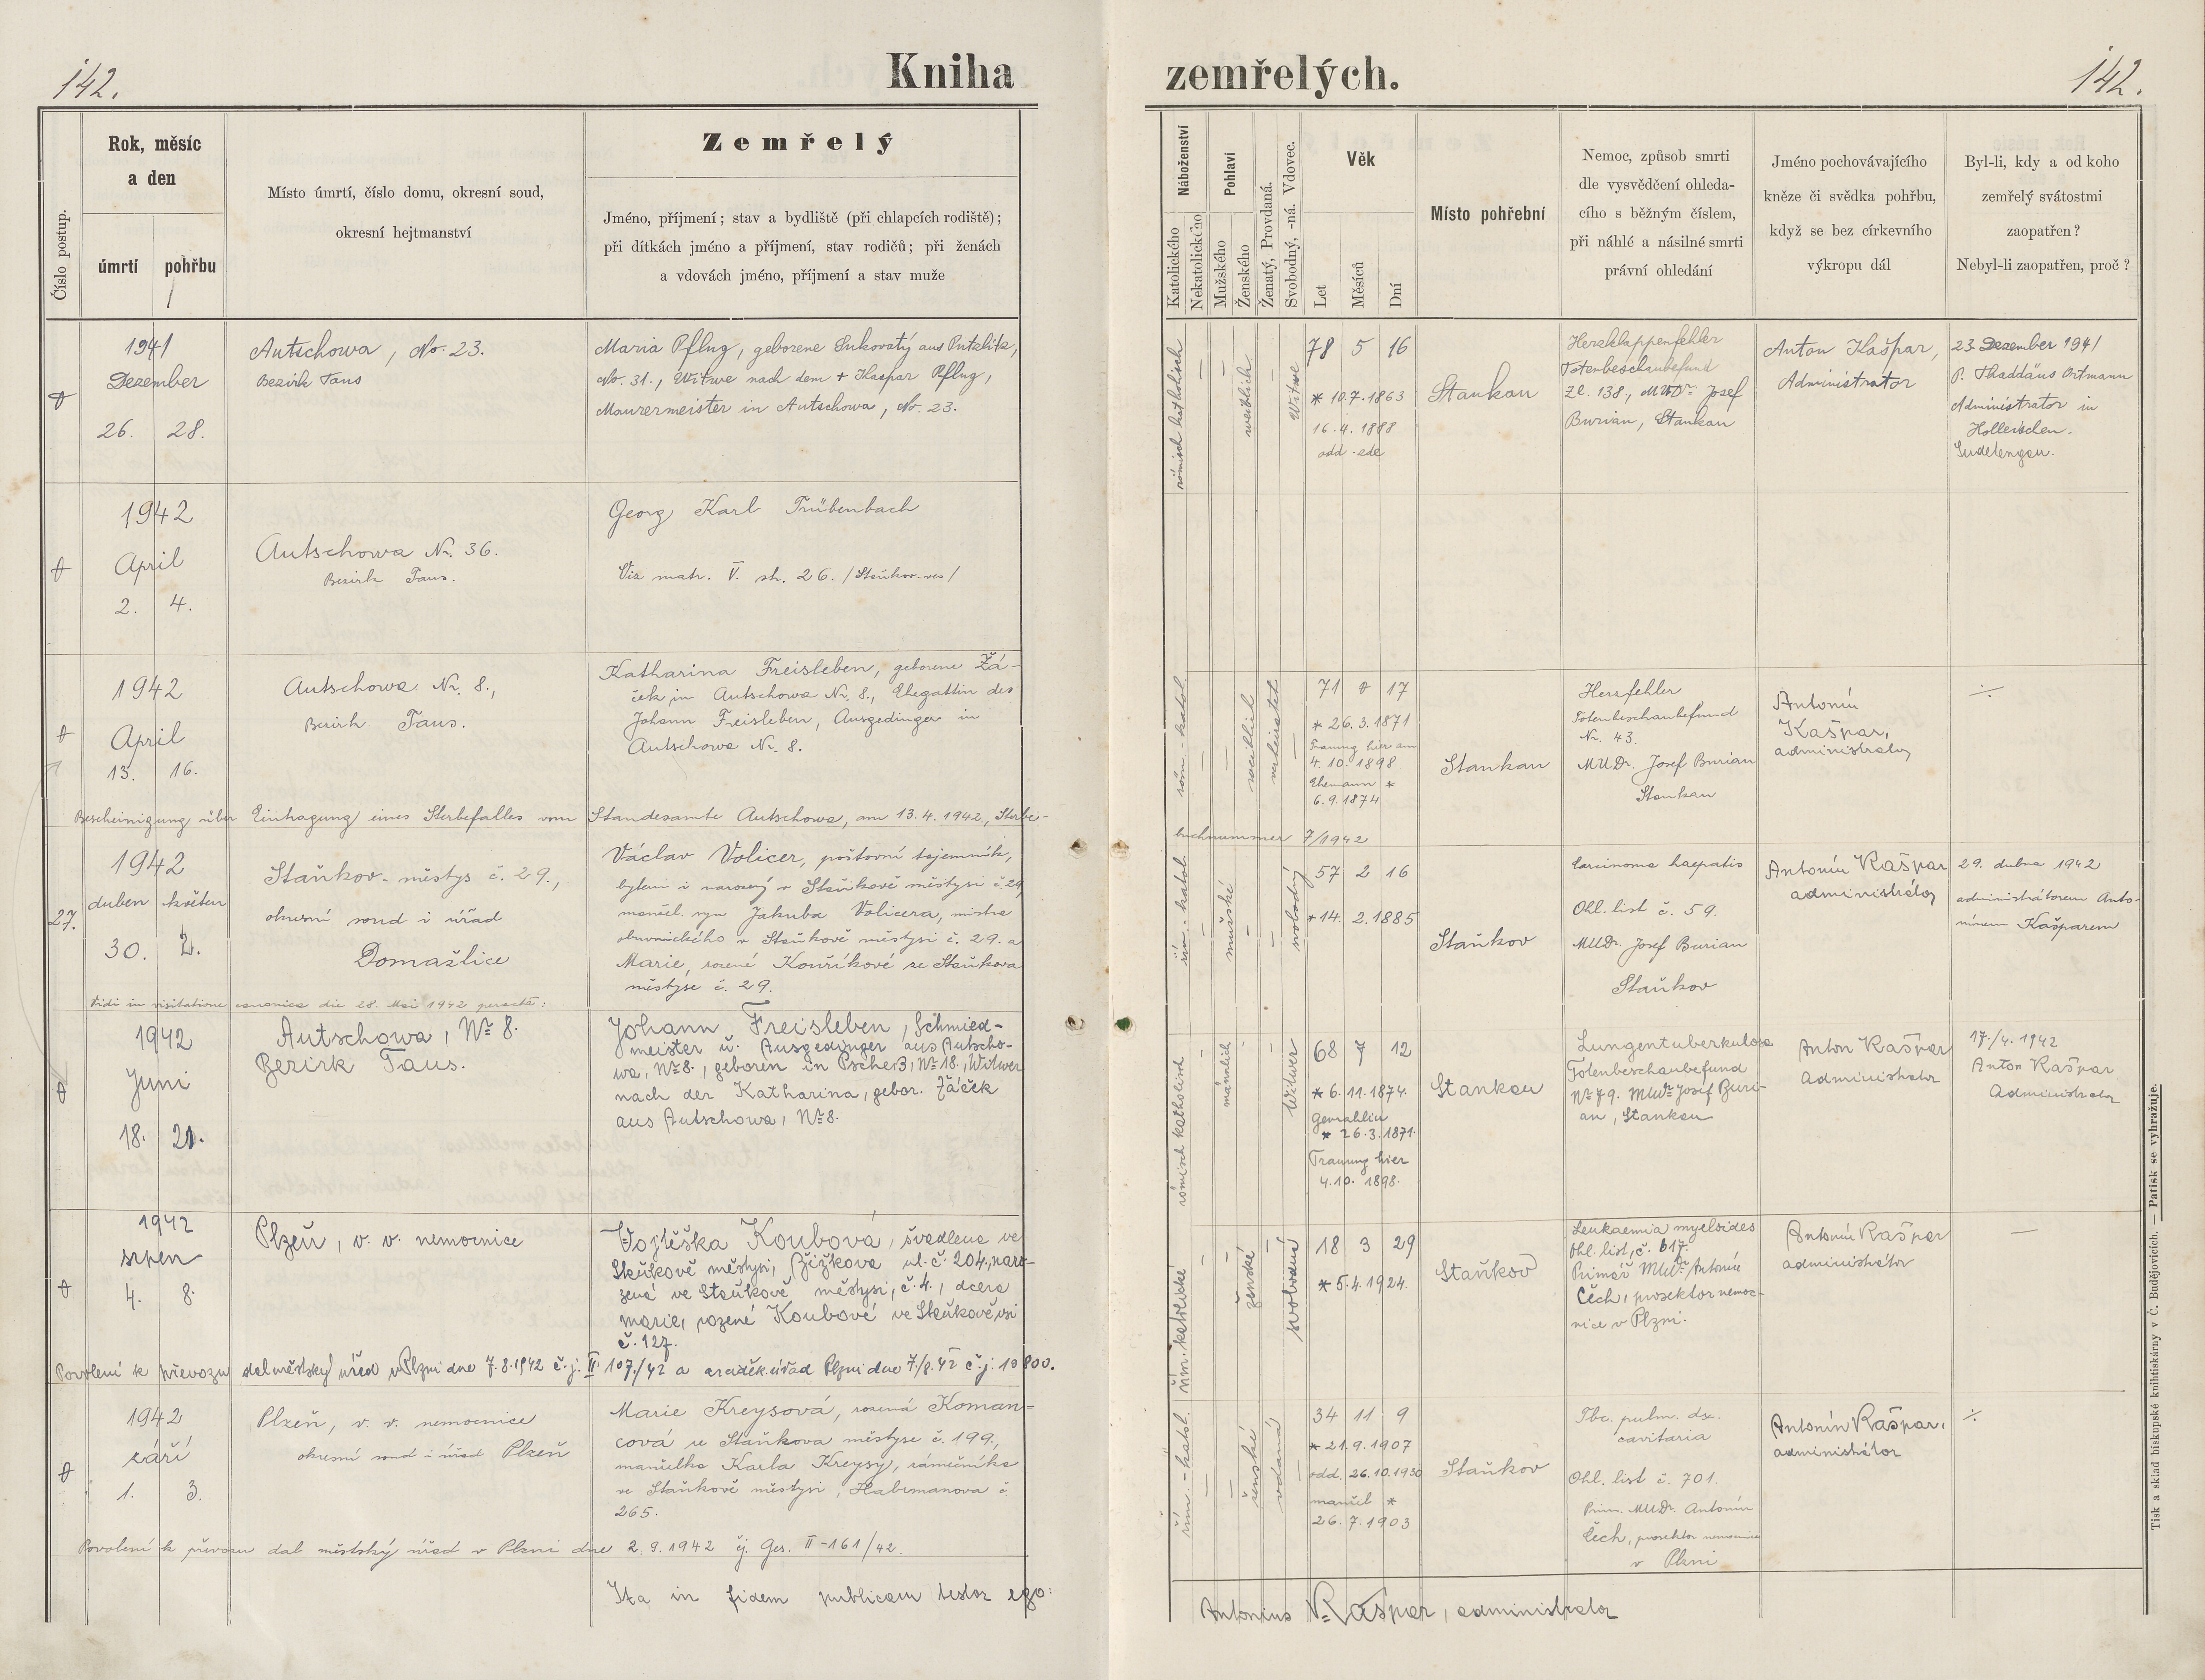 142.
Kniha
zemřelých.
142.
Číslo postup.
Rok, měsíc
a den
úmrtí
pohřbu
Místo úmrtí, číslo domu, okresní soud,
okresní hejtmanství
Zemřelý
Jméno, příjmení; stav a bydliště (při chlapcích rodiště);
při dítkách jméno a příjmení, stav rodičů; při ženách
a vdovách jméno, příjmení a stav muže
Náboženství
Katolického
Nekatolického
Pohlaví
Mužského
Ženského
Ženatý, Provdaná.
Svobodný, -ná. Vdovec.
Věk
Let
Měsíců
Dní
Místo pohřební
Nemoc, způsob smrti
dle vysvědčení ohleda-
cího s běžným číslem,
při náhlé a násilné smrti
právní ohledání
Jméno pochovávajícího
kněze či svědka pohřbu,
když se bez církevního
výkropu dál
Byl-li, kdy a od koho
zemřelý svátostmi
zaopatřen?
Nebyl-li zaopatřen, proč?
1941
Dezember
26. 28.
Autschowa, No. 23.
Bezirk Taus
Maria Pflug, geborene Sukovatý aus Putzlitz,
No. 31., Witwe nach dem + Kaspar Pflug,
Maurermeister in Autschowa, No. 23.
römisch katholisch
weiblich
Witwe
78 5 16
* 10.7.1863
16.4.1888
odd.
Stankau
Herzklappenfehler
Totenbeschaubefund
Zl. 138., MUDr. Josef
Burian, Stankau
Anton Kašpar,
Administrator
23. Dezember 1941
P. Thaddäus Ortmann
Administrator in
Holleischen.
Sudetengau.
1942
April
2. 4.
Autschowa Nr. 36.
Bezirk Taus.
Georg Karl Trübenbach
Viz matr. V. str. 26. /Staňkov-ves/
1942
April
13. 16.
Autschowa Nr. 8.,
Bezirk Taus.
Katharina Freisleben, geborene Žá-
ček in Autschowa Nr. 8., Ehegattin des
Johann Freisleben, Ausgedinger in
Autschowa Nr. 8.
röm.-katol.
weiblich
verheiratet
71 0 17
* 26.3.1871
Trauung hier am
4.10.1898
Ehemann *
6.9.1874
Stankau
Herzfehler
Totenbeschaubefund
Nr. 43.
MUDr. Josef Burian
Stankau
Antonín
Kašpar,
administrator
÷
Bescheinigung über Eintragung eines Sterbefalles vom Standesamte Autschowa, am 13.4.1942., Sterbe-
buchnummer 7/1942
27.
1942
duben květen
30. 2.
Staňkov-městys č. 29.,
okresní soud i úřad
Domažlice
Václav Volicer, poštovní tajemník,
bytem i narozený v Staňkově městysi č. 29,
manžel. syn Jakuba Volicera, mistra
obuvnického v Staňkově městysi č. 29. a
Marie, rozené Kouříkové ze Staňkova
městyse č. 29.
řím.-katol.
mužské
svobodný
57 2 16
*14. 2.1885
Staňkov
Carcinoma haepatis
Ohl. list č. 59.
MUDr. Josef Burian
Staňkov
Antonín Kašpar
administrátor
29. dubna 1942
administrátorem Anto-
nínem Kašparem
Vidi in visitatione canonica die 28. Mai 1942 peracta:
1942
Juni
18. 21.
Autschowa, No 8.
Bezirk Taus.
Johann Freisleben, Schmied-
meister u. Ausgedinger aus Autscho-
wa, No 8., geboren in Pscheß, No 18., Witwer
nach der Katharina, gebor. Žáček
aus Autschowa, No 8.
römisch katholisch
männlich
Witwer
68 7 12
* 6.11.1874.
Gemahlin
* 26.3.1871.
Trauung hier
4.10.1898.
Stankau
Lungentuberkulose
Totenbeschaubefund
No 79. MUDr. Josef Buri-
an, Stankau
Anton Kašpar
Administrator
17./4.1942
Anton Kašpar
Administrator
1942
srpen
4. 8.
Plzeň, v. v. nemocnice
Vojtěška Koubová, švadlena ve
Staňkově městysi, Žižkova ul. č. 204., naro-
zená ve Staňkově městysi, č. 4., dcera
Marie, rozené Koubové ve Staňkově vsi
č. 127.
řím. katolické
ženské
svobodná
18 3 29
* 5.4.1924.
Staňkov
Leukaemia myeloides
Ohl. list, č. 617.
Primář MUDr. Antonín
Čech, prosektor nemoc-
nice v Plzni.
Antonín Kašpar
administrátor
—
Povolení k převozu dal městský úřad v Plzni dne 7.8.1942 č.j. II 107./42 a arciděk. úřad Plzni dne 7./8.42 č.j. 10800.
1942
září
1. 3.
Plzeň, v. v. nemocnice
okresní soud i úřad Plzeň
Marie Kreysová, rozená Koman-
cová ze Staňkova městyse č. 199.,
manželka Karla Kreysy, zámečníka
ve Staňkově městysi, Habrmanova č.
265.
řím.-katol.
ženské
vdaná
34 11 9
* 21.9.1907
odd. 26.10.1930
manžel *
26.7.1903
Staňkov
Tbc. pulm. dx.
cavitaria
Ohl. list č. 701.
Prim. MUDr. Antonín
Čech, prosektor nemocnice
v Plzni
Antonín Kašpar,
administrátor
÷
Povolení k převozu dal městský úřad v Plzni dne 2.9.1942 čj. Ges. II-161/42.
Ita in fidem publicam testor ego:
Antonius Kašpar, administrator
Tisk a sklad biskupské knihtiskárny v Č. Budějovicích. — Patisk se vyhražuje.